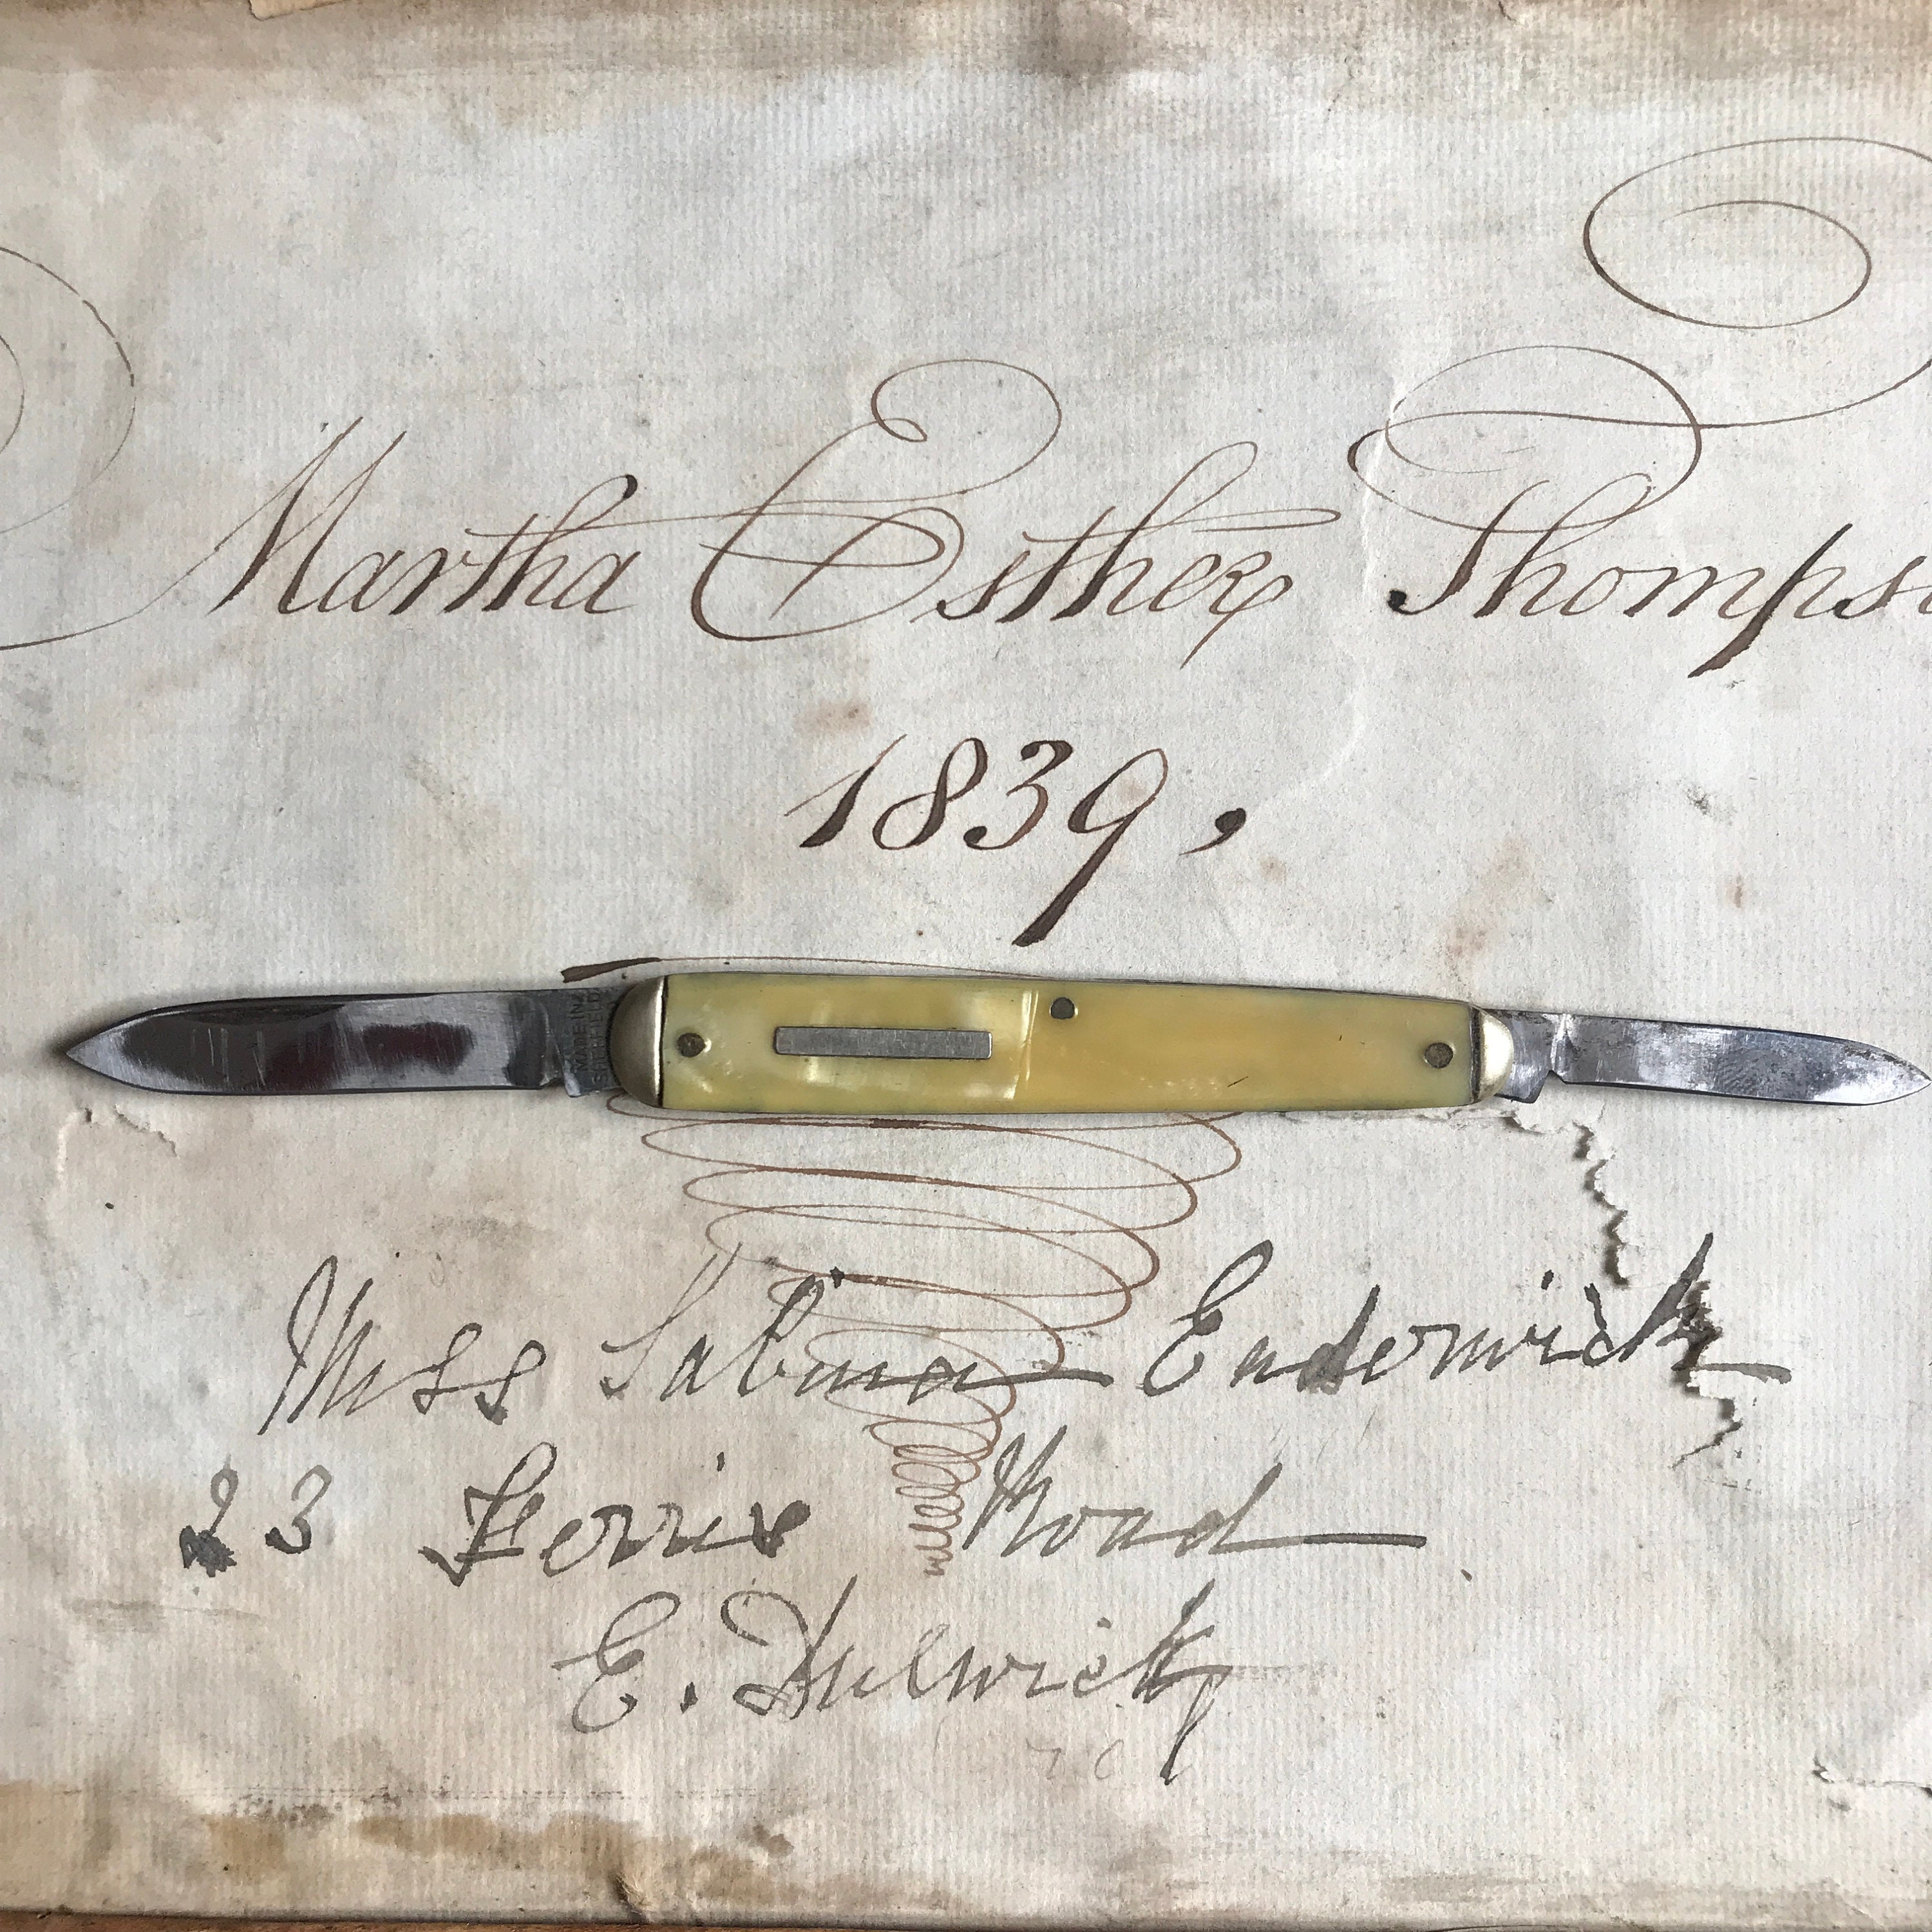 Martha Esther Thompso
1839,
MADE IN
SHEFFIELD
Miss Sabina Enderwick
23 Ferris Road
E. Dulwich